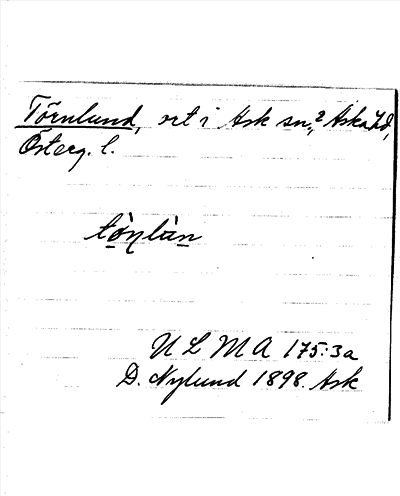 Törnlund, ort i Ask sn.,? Aska hd,
Österg. l.
tònlàn
U L M A 175:3a
D. Nylund 1898. Ask